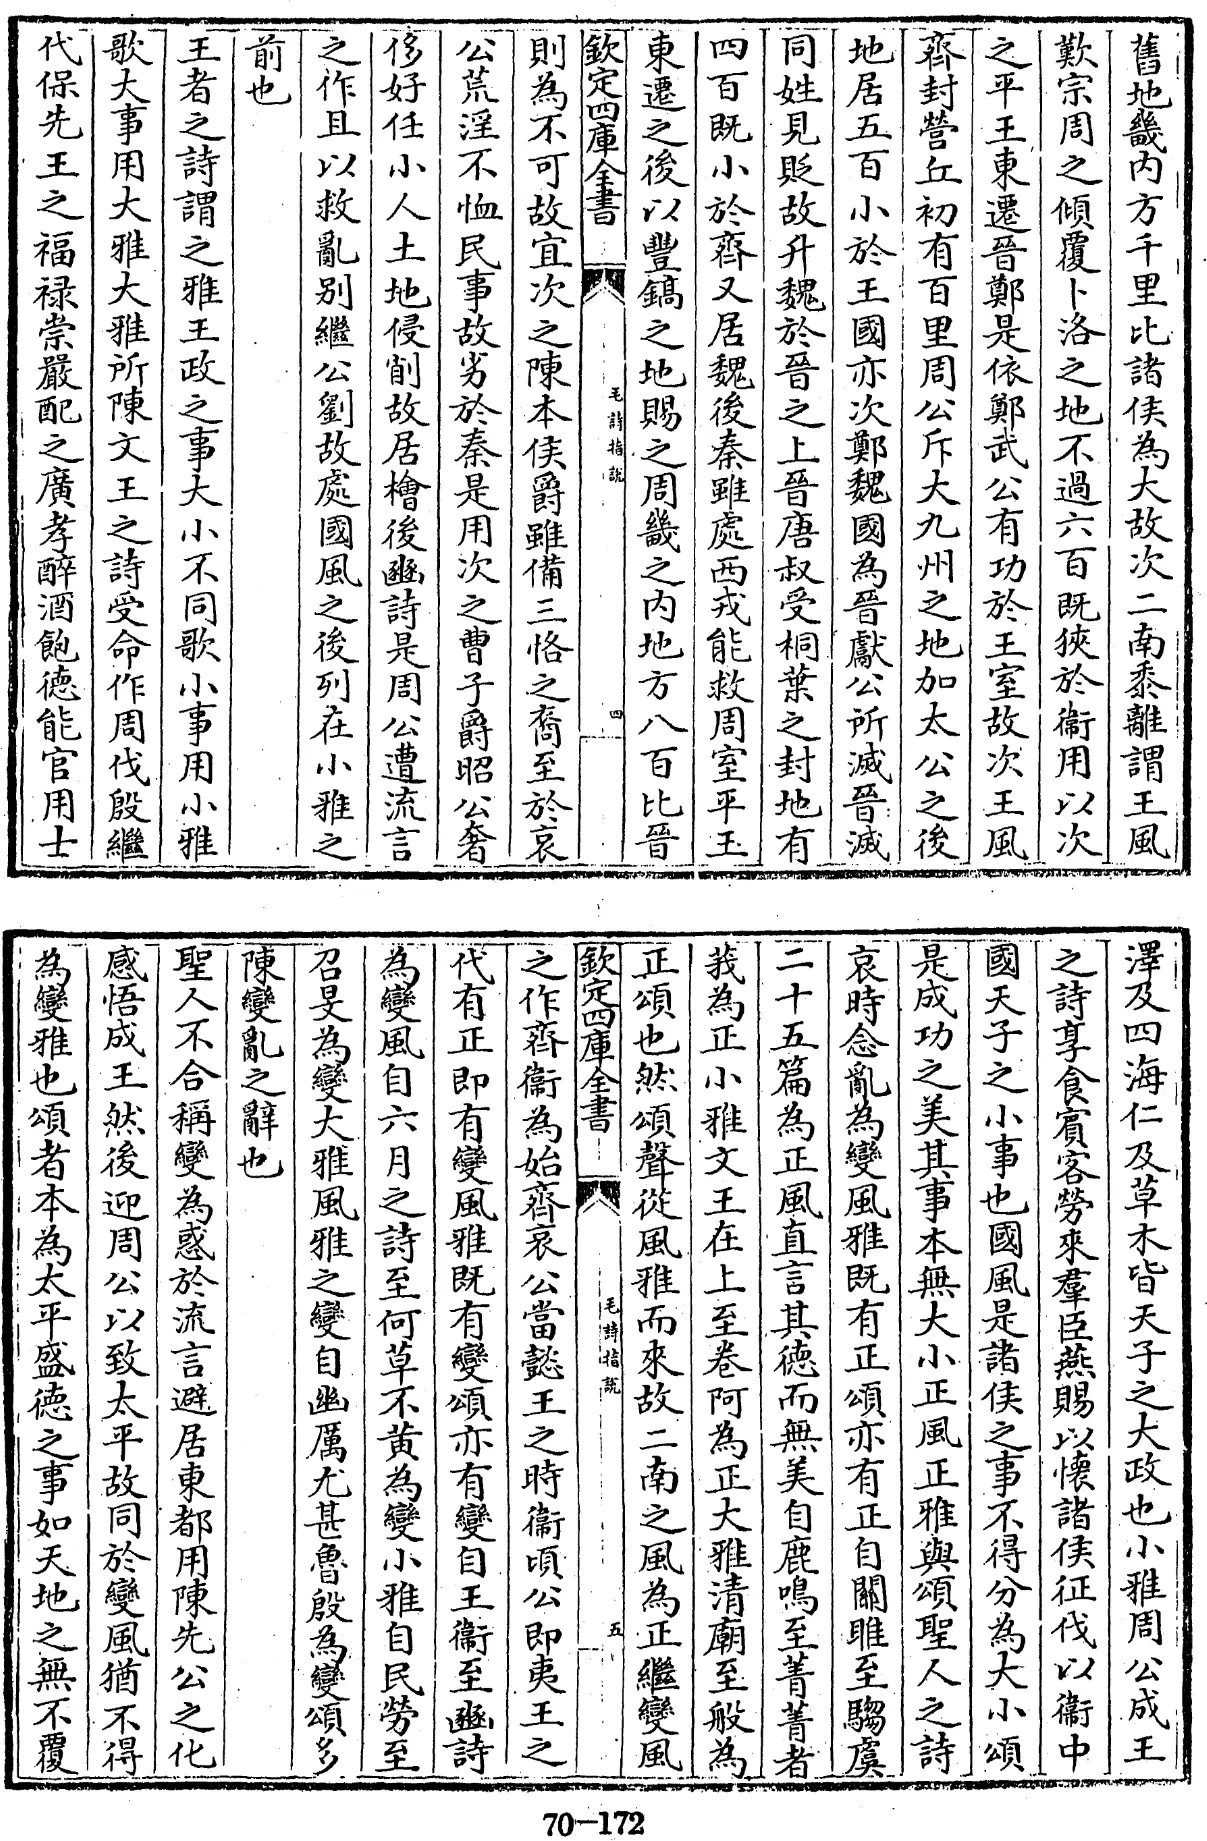 舊地畿内方千里比諸侯為大故次二南黍離謂王風
歎宗周之傾覆卜洛之地不過六百既狹於衞用以次
之平王東遷晉鄭是依鄭武公有功於王室故次王風
齊封營丘初有百里周公斥大九州之地加太公之後
地居五百小於王國亦次鄭魏國為晉獻公所滅晉滅
同姓見貶故升魏於晉之上晉唐叔受桐葉之封地有
四百既小於齊又居魏後秦雖處西戎能救周室平王
東遷之後以豐鎬之地賜之周畿之内地方八百比晉
欽定四庫全書
毛詩指説
四
則為不可故宜次之陳本侯爵雖備三恪之裔至於哀
公荒淫不恤民事故劣於秦是用次之曹子爵昭公奢
侈好任小人土地侵削故居檜後豳詩是周公遭流言
之作且以救亂别繼公劉故處國風之後列在小雅之
前也
王者之詩謂之雅王政之事大小不同歌小事用小雅
歌大事用大雅大雅所陳文王之詩受命作周伐殷繼
代保先王之福禄崇嚴配之廣孝醉酒飽德能官用士
澤及四海仁及草木皆天子之大政也小雅周公成王
之詩享食賓客勞來羣臣燕賜以懷諸侯征伐以衞中
國天子之小事也國風是諸侯之事不得分為大小頌
是成功之美其事本無大小正風正雅與頌聖人之詩
哀時念亂為變風雅既有正頌亦有正自關雎至騶虞
二十五篇為正風直言其德而無美自鹿鳴至菁菁者
莪為正小雅文王在上至卷阿為正大雅清廟至般為
正頌也然頌聲從風雅而來故二南之風為正繼變風
欽定四庫全書
毛詩指説
五
之作齊衞為始齊哀公當懿王之時衞頃公即夷王之
代有正即有變風雅既有變頌亦有變自王衞至豳詩
為變風自六月之詩至何草不黄為變小雅自民勞至
召旻為變大雅風雅之變自幽厲尤甚魯殷為變頌多
陳變亂之辭也
聖人不合稱變為惑於流言避居東都用陳先公之化
感悟成王然後迎周公以致太平故同於變風猶不得
為變雅也頌者本為太平盛德之事如天地之無不覆
70-172